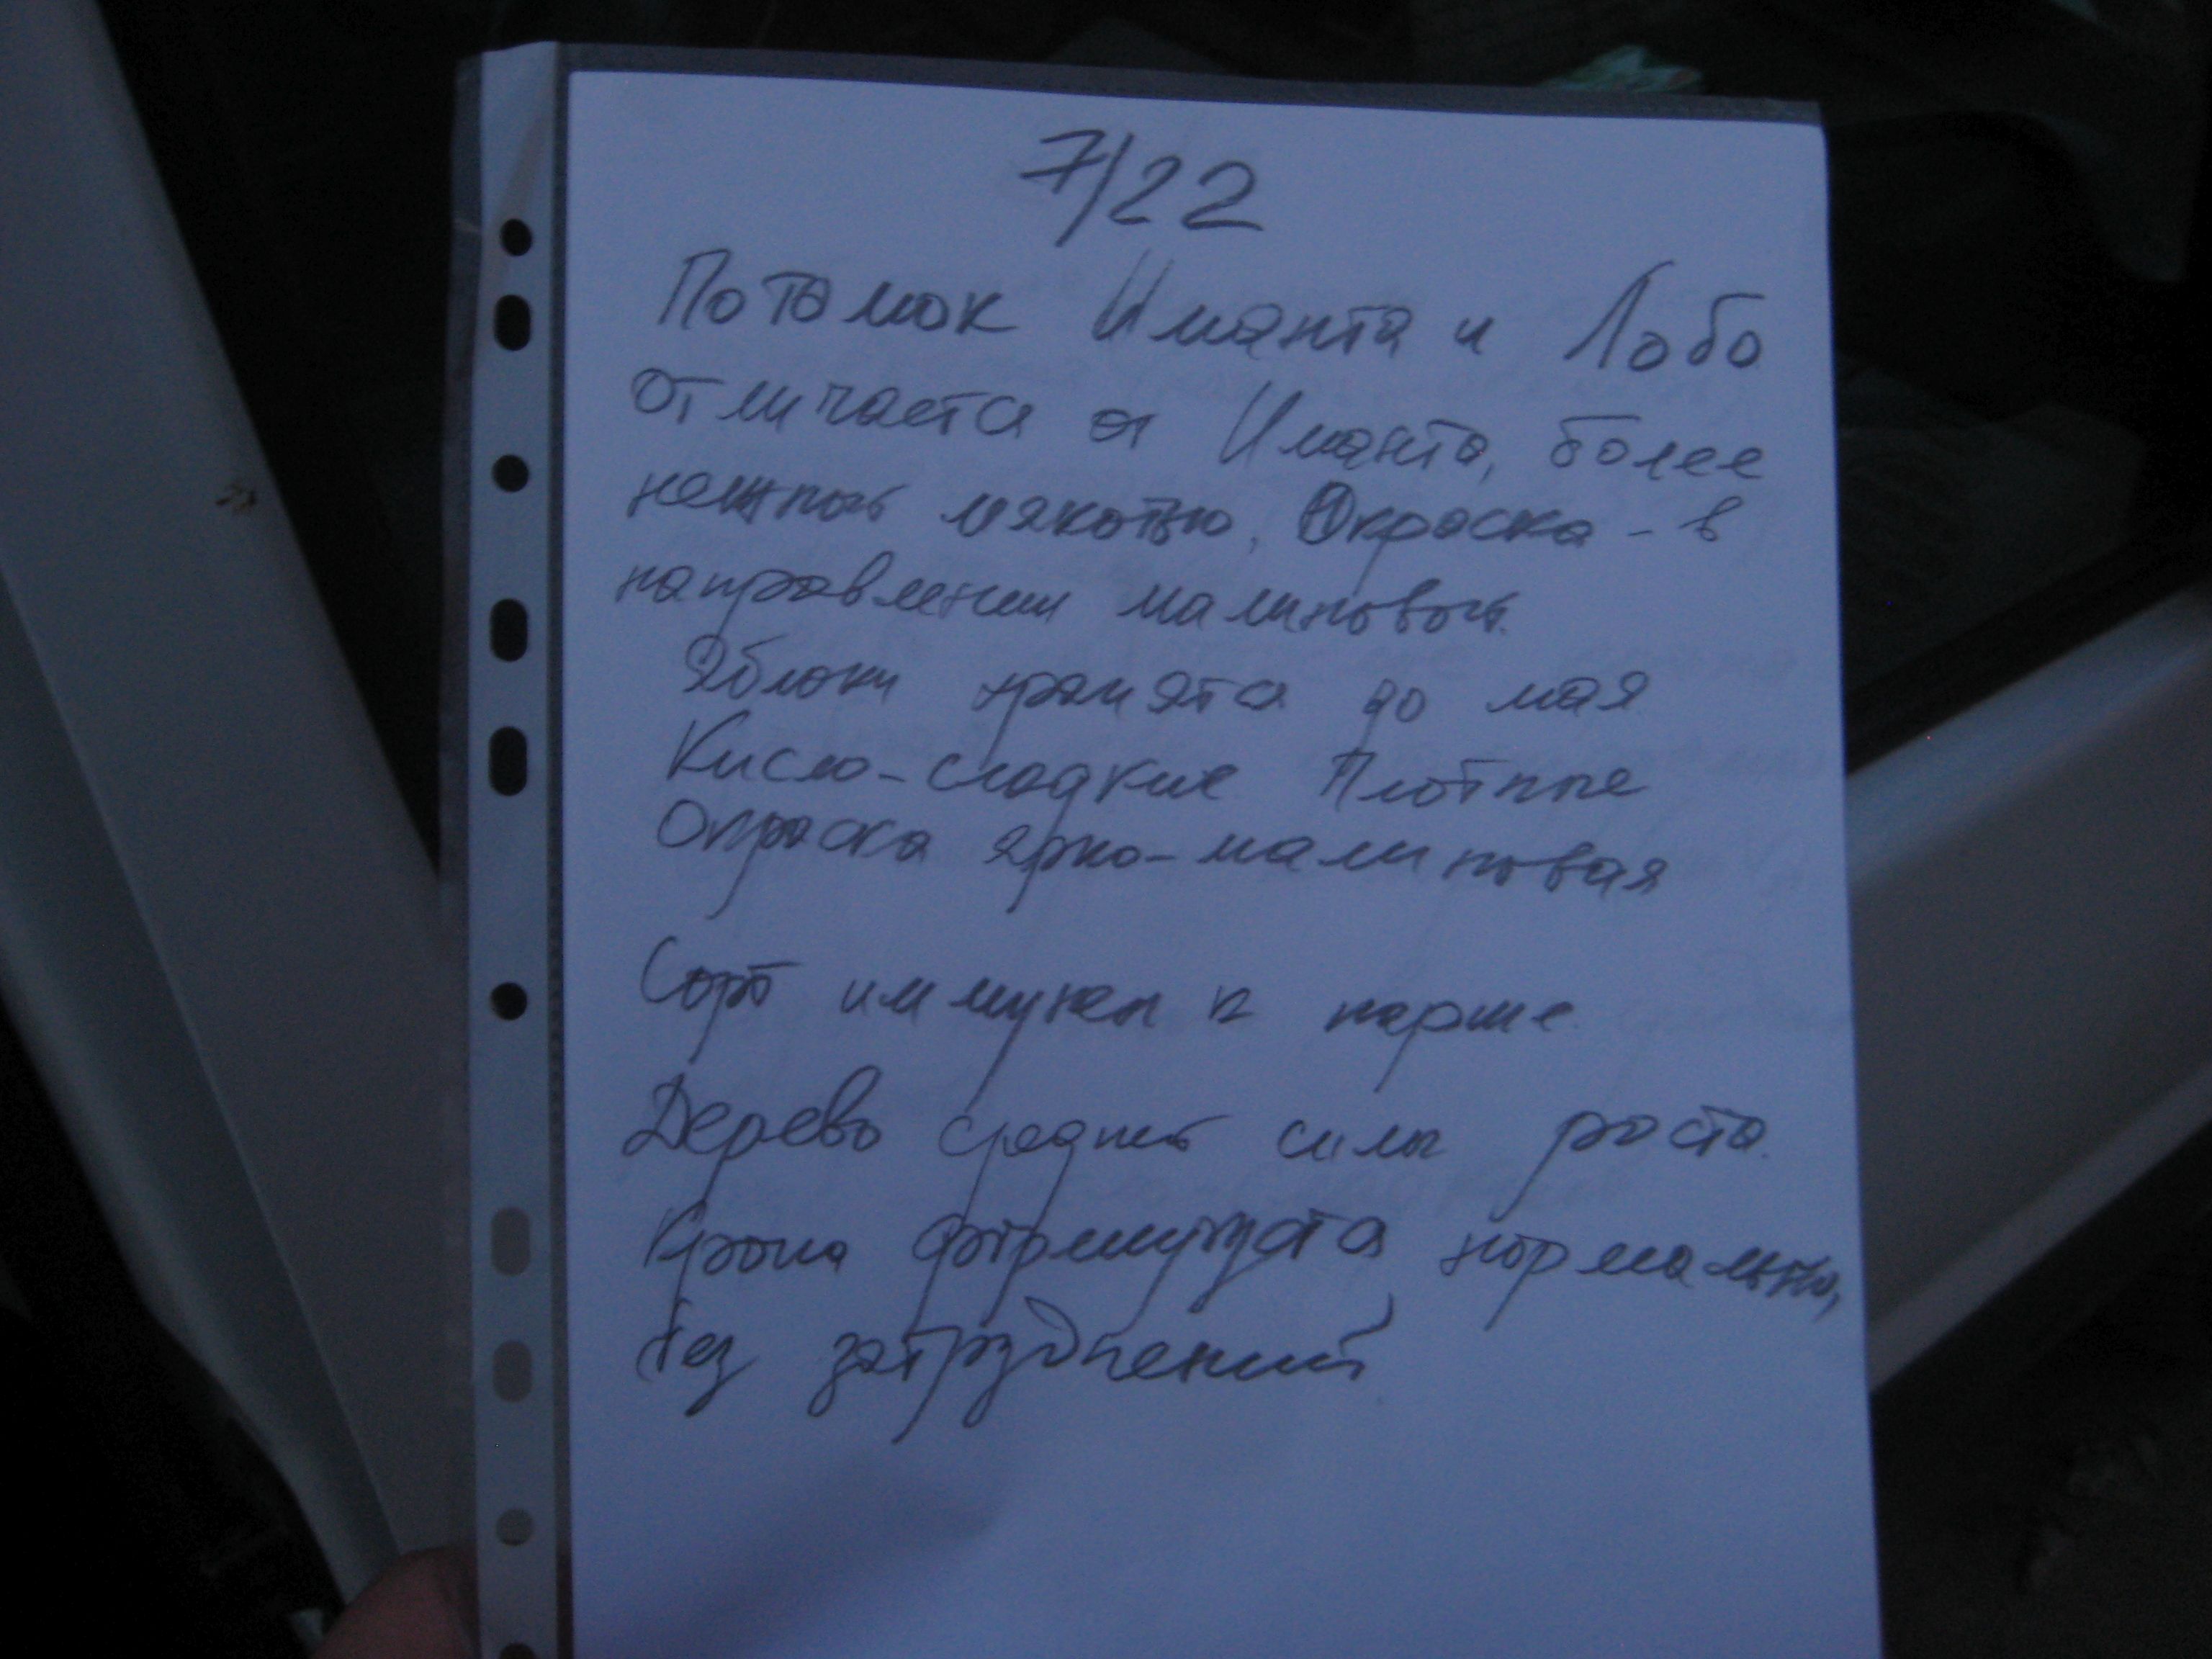 7/22
Потомок Иманта и Лобо
отличается от Иманта, более
нежной мякотью. Окраска - в
направлении малиновой.
Яблоки хранятся до мая
Кисло-сладкие Плотные
Окраска ярко-малиновая
Сорт иммунен к парше.
Дерево средней силы роста.
Крона формируется нормально,
без затруднений